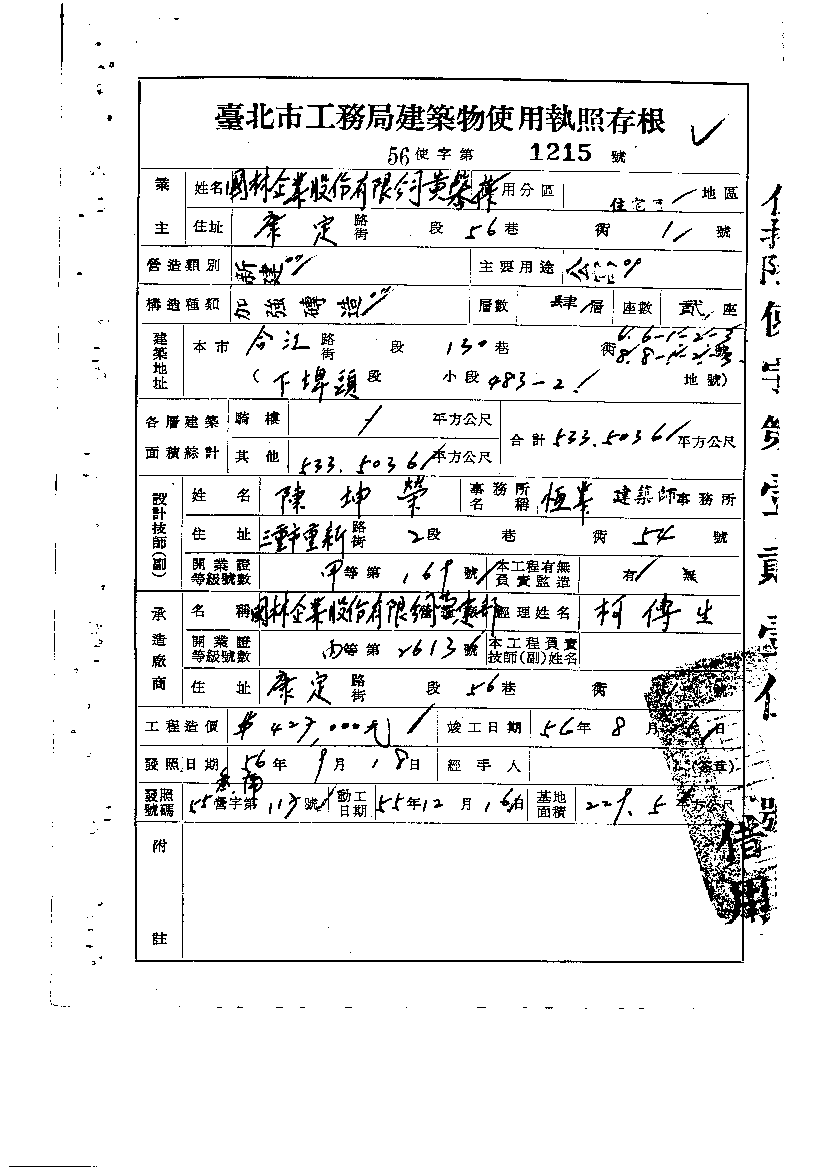 臺北市工務局建築物使用執照存根
56使字第 1215 號
業主 姓名 國林企業股份有限公司黃榮 用分區 住宅 地區
住址 康定 路街 段 56巷 衖 1 號
營造類別 新建 主要用途
構造種類 加強磚造 層數 肆層 座數 貳座
建築地址 本市 合江 路街 段 130巷 衖 4.6-1-2-3
8.8-1-2 號
(下埤頭段 小段 483-2 地號)
各層建築面積綜計 騎樓 平方公尺 合計 533.5036 平方公尺
其他 533.5036 平方公尺
設計技師(副) 姓名 陳坤榮 事務所名稱 恒業 建築師事務所
住址 三重市重新 路街 2段 巷 衖 54 號
開業證等級號數 甲等第 169 號 本工程有無負責監造 有 無
承造廠商 名稱 國林企業股份有限公司營建部 經理姓名 柯傳生
開業證等級號數 丙等第 2613 號 本工程負責技師(副)姓名
住址 康定 路街 段 56巷 衖 號
工程造價 $427,000元 竣工日期 56年 8月 日
發照日期 56年 9月 18日 經手人 (簽章)
發照號碼 55營字第 113 號 動工日期 55年12月16日 基地面積 229.5 平方公尺
附註
借用